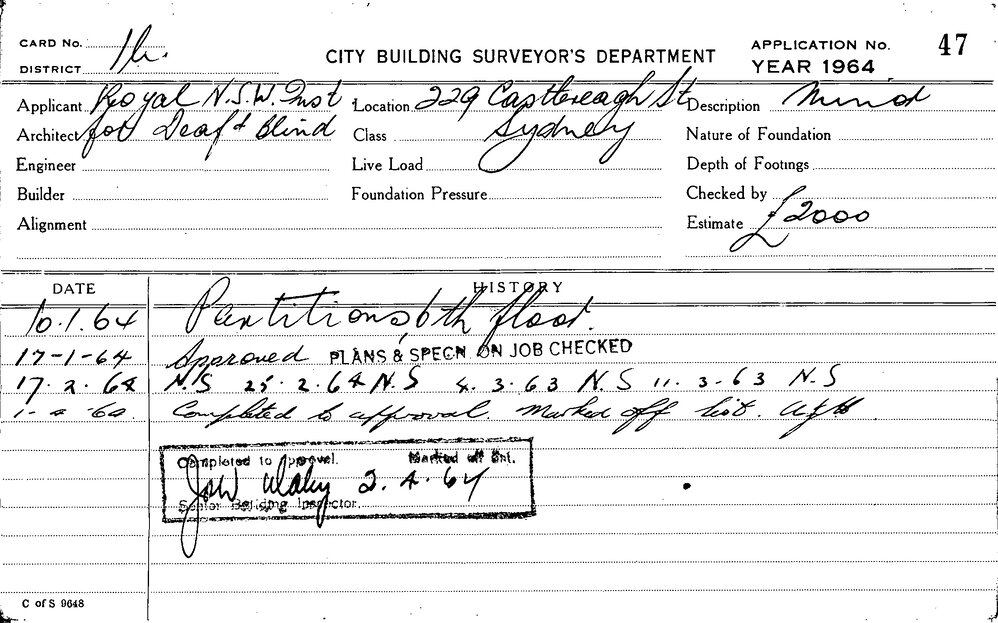 CARD No. 
DISTRICT 
CITY BUILDING SURVEYOR'S DEPARTMENT
APPLICATION No. 47
YEAR 1964
Applicant Royal N.S.W. Inst Location 229 Castlereagh St Description Minor
Architect for Deaf & Blind Class Sydney Nature of Foundation
Engineer Live Load Depth of Footings
Builder Foundation Pressure Checked by
Alignment Estimate £2000
DATE HISTORY
10.1.64 Partitions, 6th floor.
17-1-64 Approved PLANS & SPECN. ON JOB CHECKED
17.2.64 N.S 25.2.64 N.S 4.3.63 N.S 11.3.63 N.S
Completed to approval. Marked off list.
Completed to approval. Marked off list.
2.4.64
Senior Building Inspector.
C of S 9648